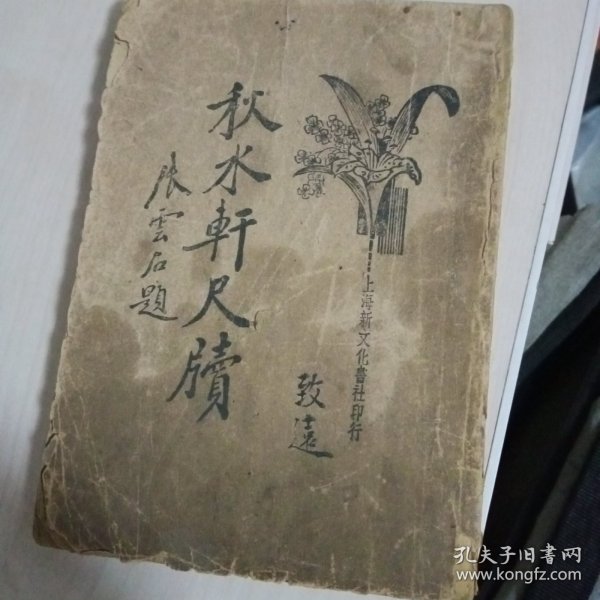 上海新文化書社印行
秋水軒尺牘
張雲石題
致遠
孔夫子旧書网
www.kongfz.com